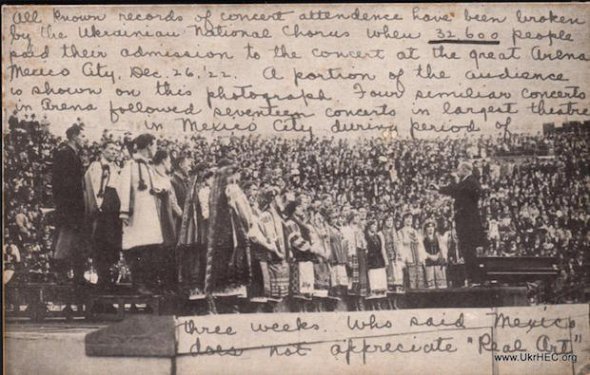 All known records of concert attendence have been broken
by the Ukrainian National Chorus when 32600 people
paid their admission to the concert at the great Arena
Mexico City, Dec. 26, '22. A portion of the audience
is shown on this photograph. Four similiar concerts
in Arena followed seventeen concerts in largest theatre
in Mexico City during period of
three weeks. Who said Mexico
does not appreciate "Real Art"
www.UkrHEC.org